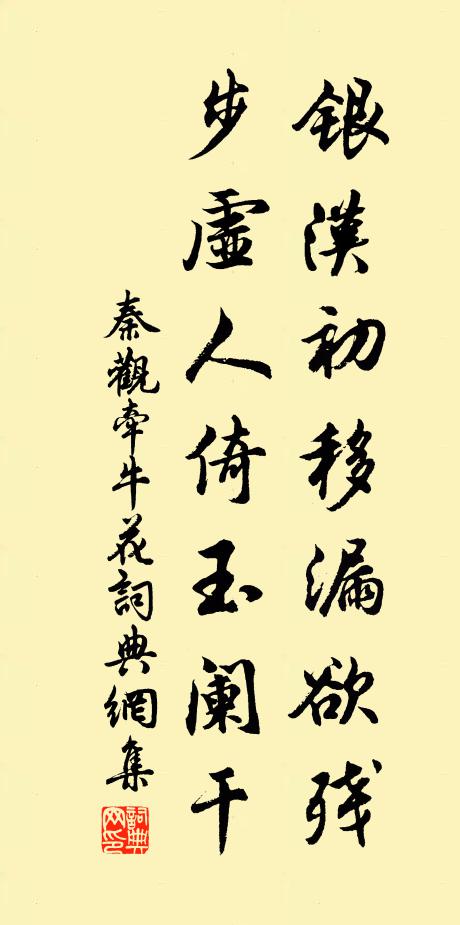 银漢初移漏欲残
步虚人倚玉阑干
秦觀牽牛花詞典網集
詞典网印